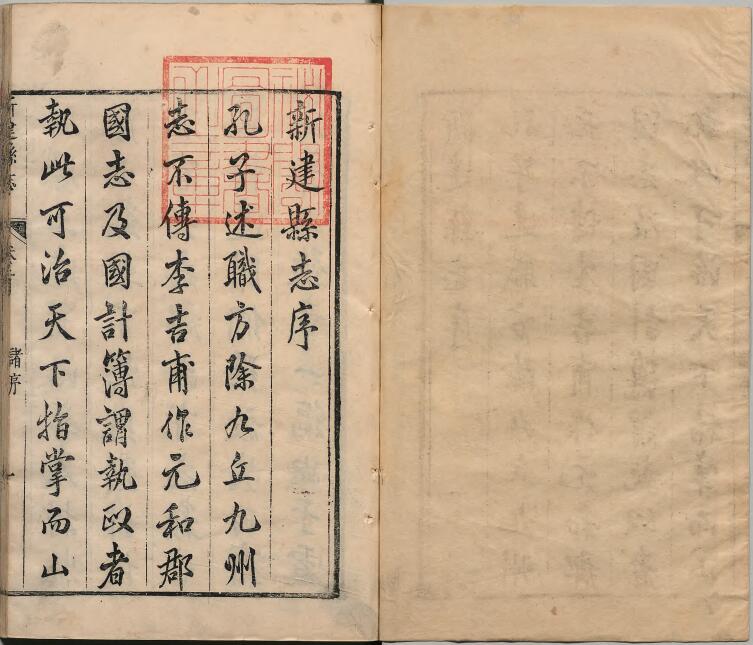 新建縣志序
孔子述職方除九丘九州
志不傳李吉甫作元和郡
國志及國計簿謂執政者
執此可治天下指掌而山
諸序